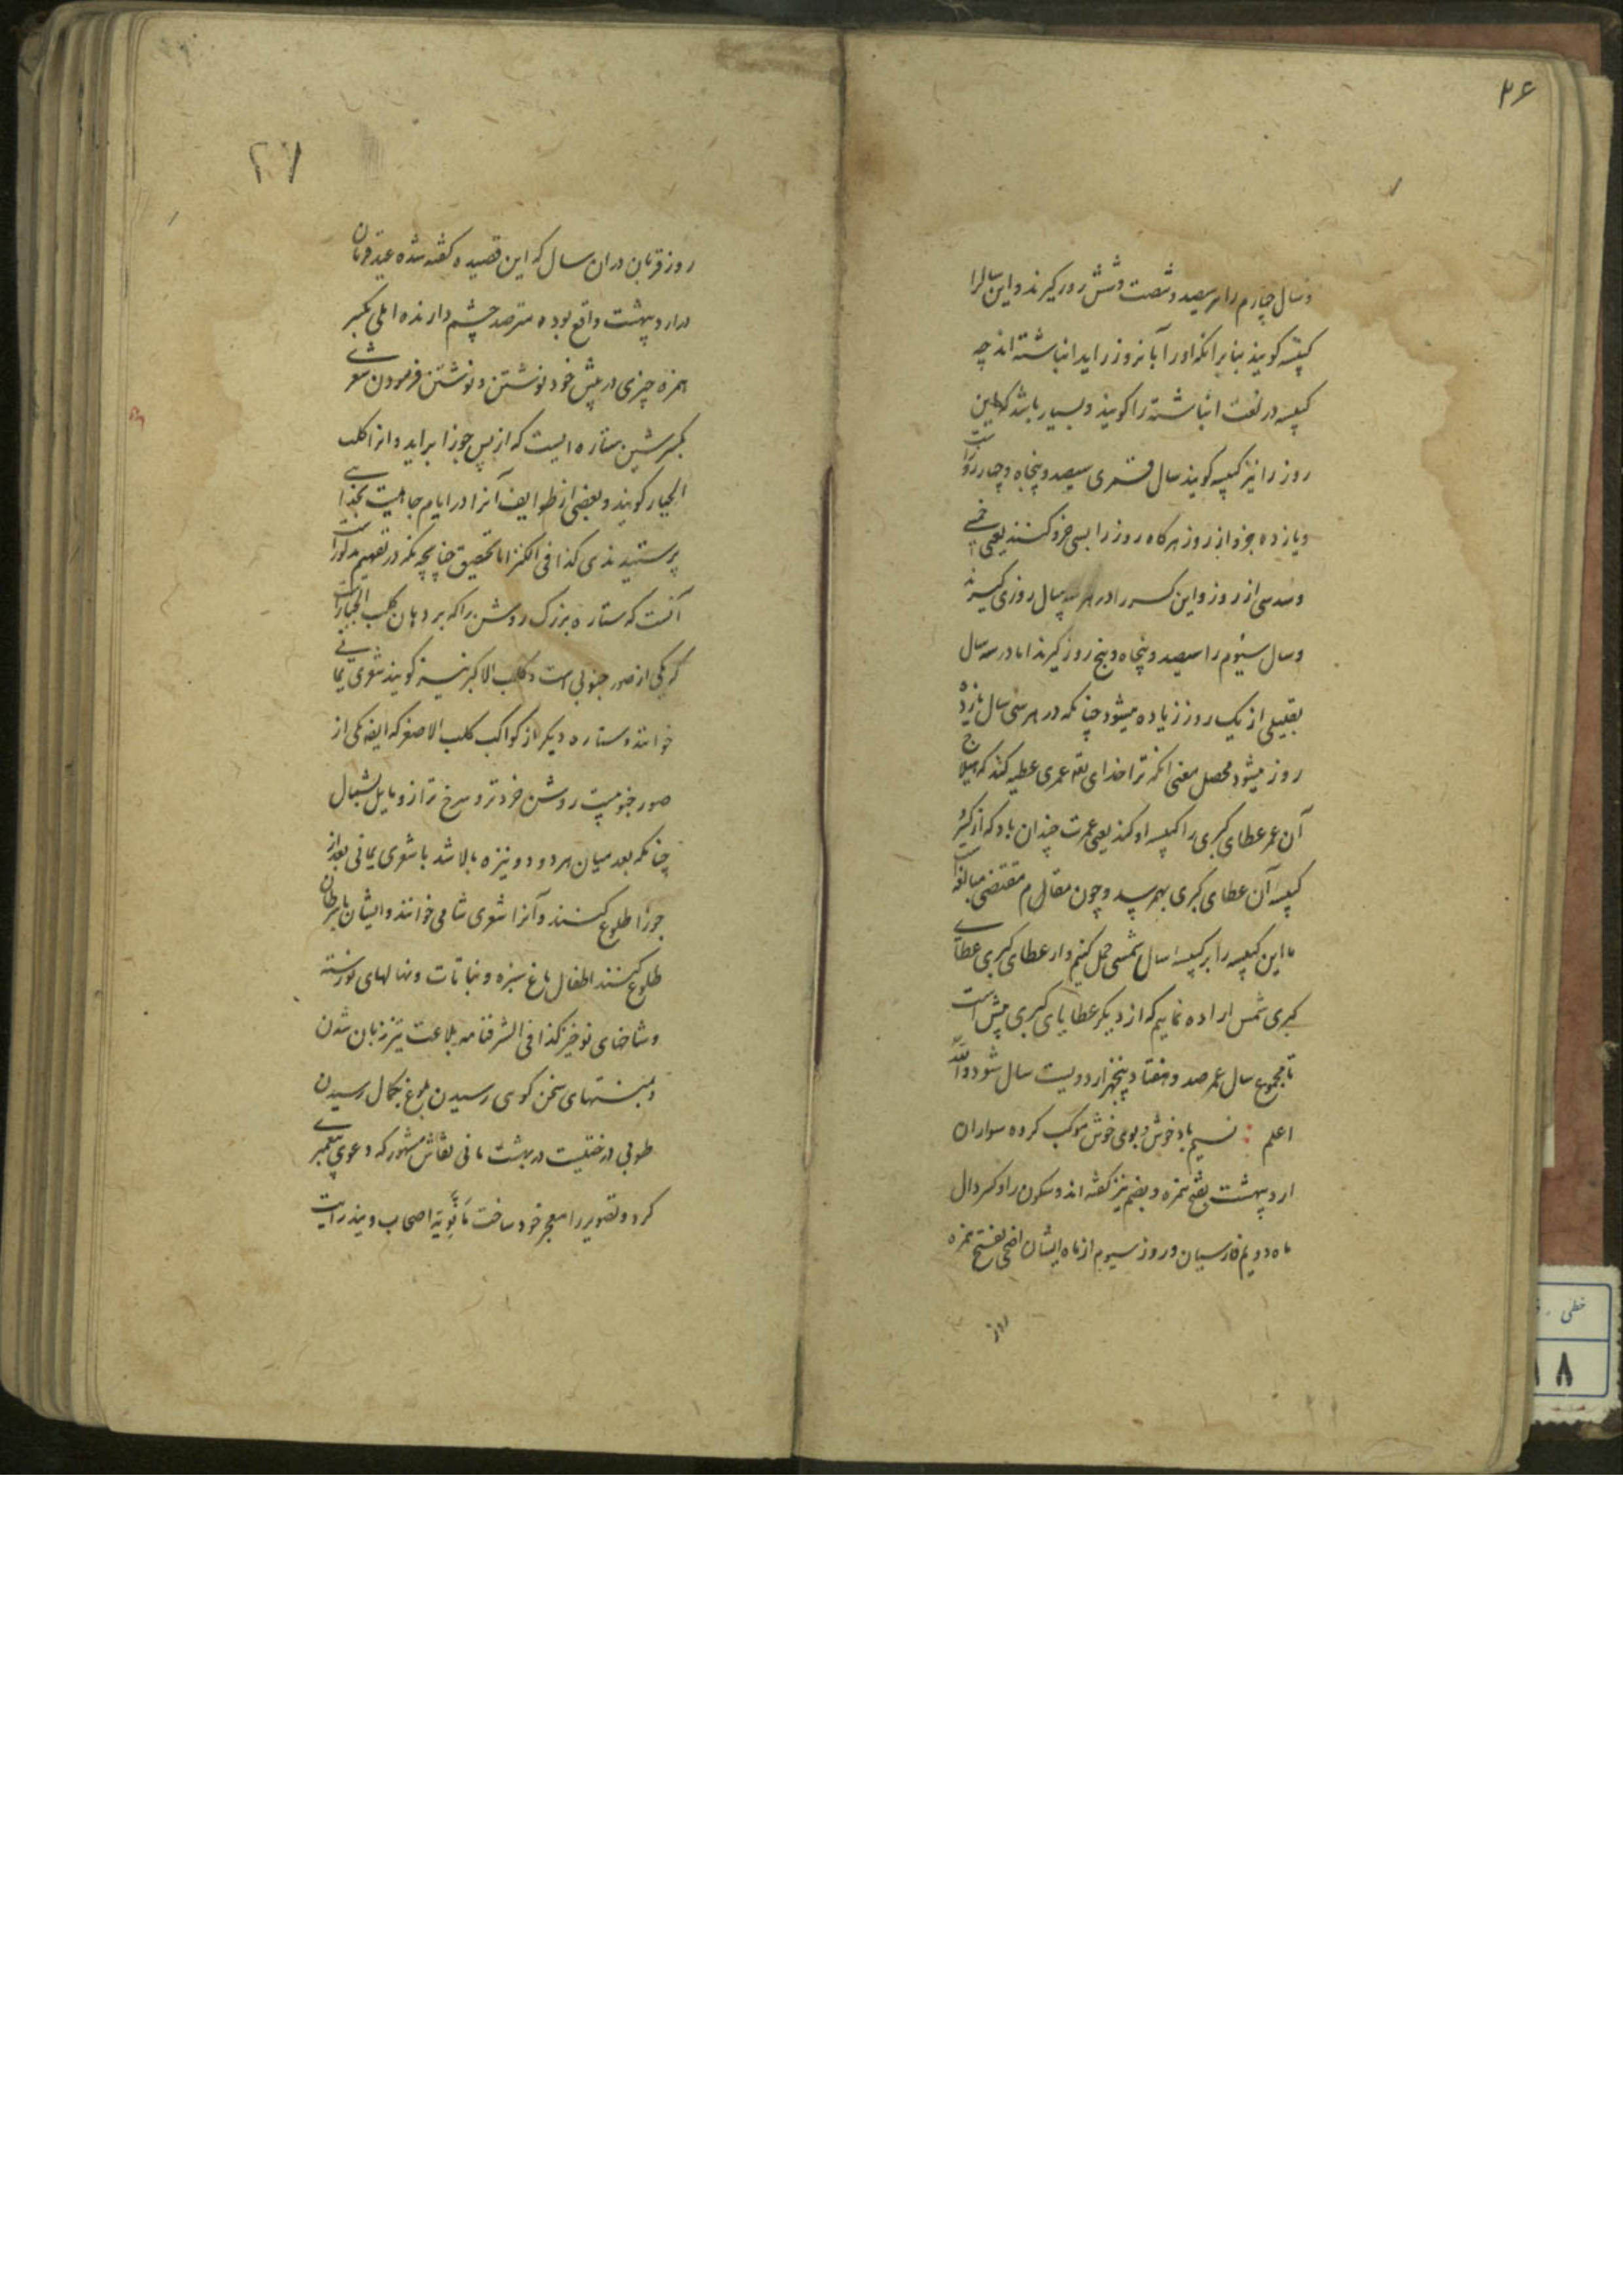 ۲۶
و سال چهارم را سیصد و شصت و شش روز گیرند و این سالرا
کبیسه گویند بنابر انکه اورا بآنروز زاید انباشته اند چه
کبیسه در لغت انباشته را گویند و بسیار باشد که این
روز را نیز کبیسه گویند سال قمری سیصد و پنجاه و چهار روز است
و یازده جزو از روز هر گاه روز را بسی جزو کنند یعنی خمسی
و سدسی از روز و این کسر را در هر سه سال روزی گیرند
و سال سیوم را سیصد و پنجاه و پنج روز گیرند اما در سه سال
بقلیلی از یک روز زیاده میشود چنانکه در هر سی سال یازده
روز میشود محصل معنی انکه ترا خدای تعه عمری عطیه کند که
آن عمر عطای کبری را کبیسه او کند یعنی عمرت چندان باد که از
کبیسه آن عطای کبری بهمرسد و چون مقام مقتضی مبالغه است
ما این کبیسه را بر کبیسه سال شمسی حمل کنیم و از عطای کبری عطای
کبری شمس اراده نماییم که از دیگر عطایای کبری بیش است
تا مجموع سال عمر صد و هفتاد و پنجهزار و دویست سال شود والله
اعلم : نسیم باد خوش و بوی خوش موکب گروه سواران
اردیبهشت بفتح همزه و بضم نیز گفته اند و سکون را و کسر دال
ماه دویم فارسیان و روز سیوم از ماه ایشان اضحی بفتح همزه
روز
۲۷
روز قربان دران سال که این قصیده گفته شده عید قربان
در اردیبهشت واقع بوده مترصد چشم دارنده املی بکسر
همزه چیزی در پیش خود نوشتن و نوشتن فرمودن شعری
بکسر شین ستاره ایست که از پس جوزا براید و انرا کلب
الجبار گویند و بعضی از طوایف آنرا در ایام جاهلیت بخدایی
پرستیدندی کذا فی الکنز اما تحقیق چنانچه در تفهیم مذکور است
آنست که ستاره بزرگ روشن را که بر دهان کلب الجبار است
که یکی از صور جنوبی است و کلب الاکبر نیز گویند شعری یمانی
خوانند و ستاره دیگر از کواکب کلب الاصغر که ایضه یکی از
صور جنوبیست روشن خردتر و سرخ تر از و مایل بشمال
چنانکه بعد میان هر دو دو نیزه بالا شد با شعری یمانی بعد از
جوزا طلوع کنند و آنرا شعری شامی خوانند و ایشان با سرطان
طلوع کنند اطفال باغ سبزه و نباتات و نهالهای نورسته
و شاخهای نوخیز کذا فی الشرفنامه بلاغت تیز زبان شدن
و بمنتهای سخن گوی رسیدن بلوغ بکمال رسیدن
طوبی درختیست در بهشت مانی نقاش مشهور که دعوی پیغمبری
کرد و تصویر را معجز خود ساخت مانویة اصحاب ویند رایت
خطی
۸